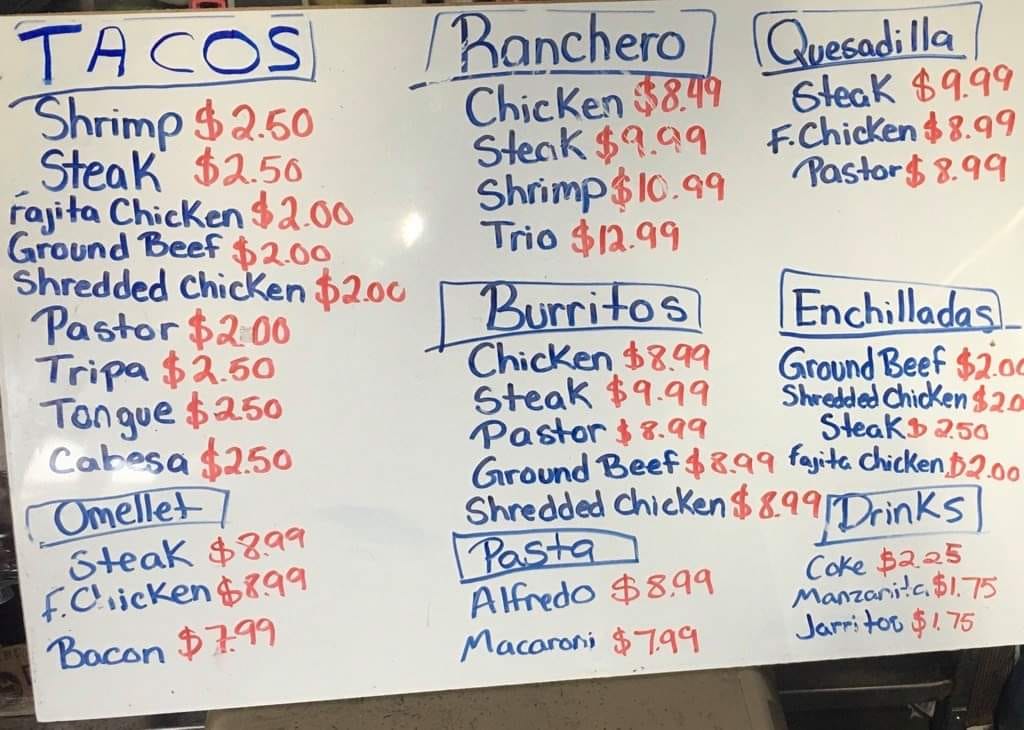 TACOS
Shrimp $2.50
Steak $2.50
Fajita Chicken $2.00
Ground Beef $2.00
Shredded Chicken $2.00
Pastor $2.00
Tripa $2.50
Tongue $250
Cabesa $2.50
Omellet
Steak $8.99
F. Chicken $8.99
Bacon $7.99
Ranchero
Chicken $8.49
Steak $9.99
Shrimp $10.99
Trio $12.99
Burritos
Chicken $8.99
Steak $9.99
Pastor $8.99
Ground Beef $8.99
Shredded Chicken $8.99
Pasta
Alfredo $8.99
Macaroni $7.99
Quesadilla
Steak $9.99
F. Chicken $8.99
Pastor $8.99
Enchilladas
Ground Beef $2.00
Shredded Chicken $2.0
Steak $2.50
fajita chicken $2.00
Drinks
Coke $2.25
Manzanita $1.75
Jarritos $1.75